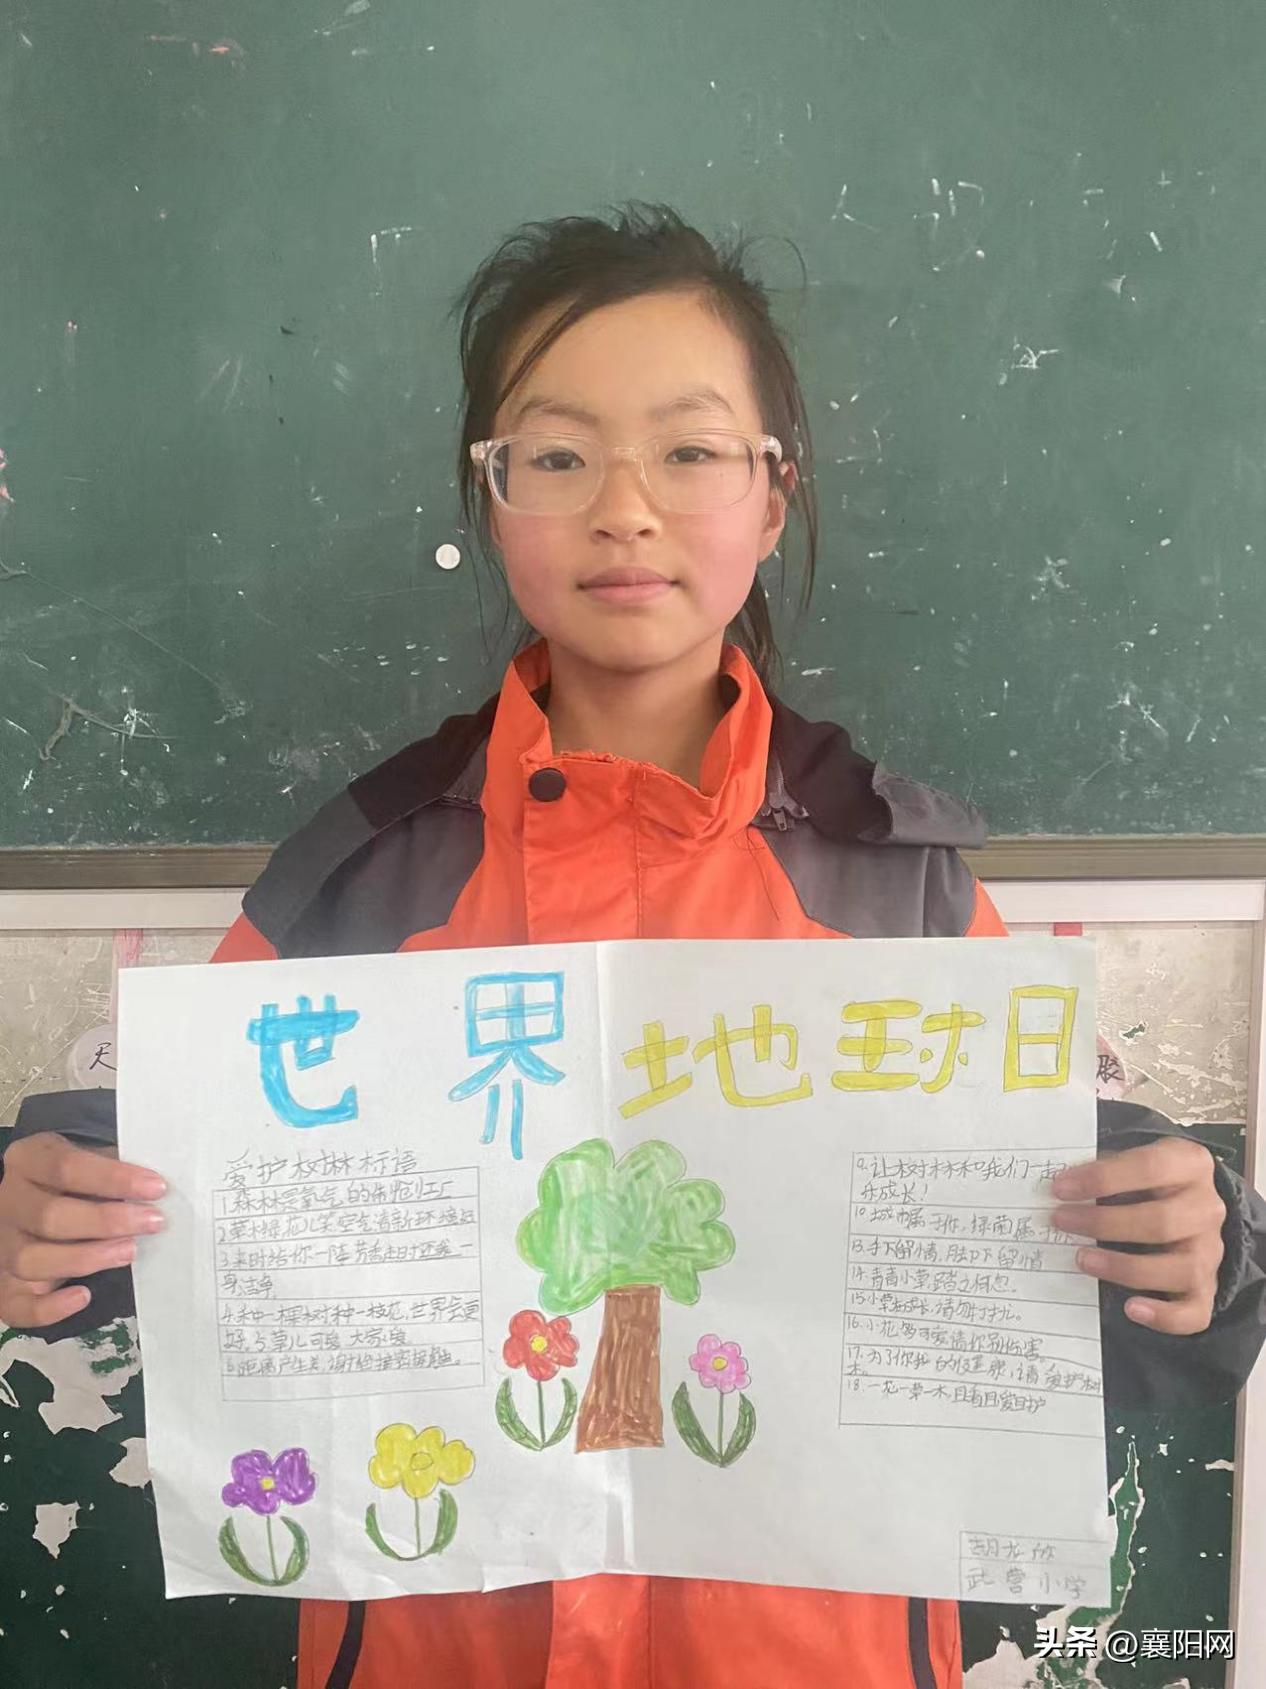 世界地球日
爱护树林标语
1.森林是氧气的制造工厂
2.草木绿花儿笑空气清新环境好
3.来时给你一阵芳香走时还我一
身洁净
4.种一棵树种一枝花,世界会更
好,与草儿可爱 大家爱。
5.距离产生美,谢绝亲密接触。
9.让树林和我们一起
乐成长!
10.城市属于你,绿荫属于你
13.手下留情,脚下留情
14.青青小草,踏之何忍。
15.小草成长,请勿打扰。
16.小花多可爱请你别伤害。
17.为了你我的健康,请爱护树
木。
18.一花一草一木,且看且爱且护
武营小学
天
胶
头条 @襄阳网